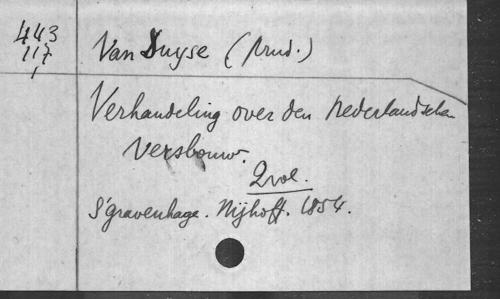 443
117
Van Duyse (Prud.)
Verhandeling over den Nederlandschen
Versbouw.
2 vol.
S'gravenhage. Nijhoff. 1854.